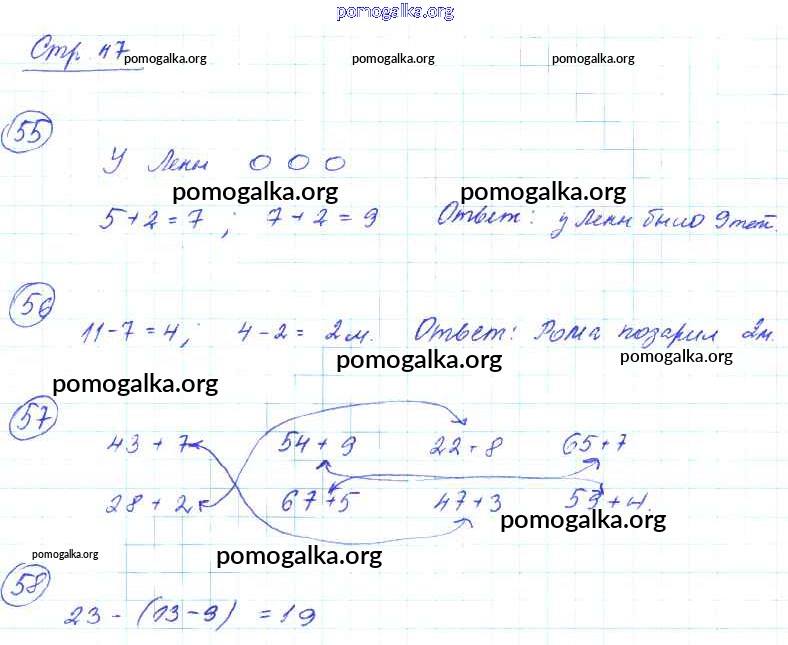 pomogalka.org
Стр. 47
pomogalka.org pomogalka.org pomogalka.org
55
У Лены О О О
pomogalka.org pomogalka.org
5+2=7; 7+2=9 Ответ: у Лены было 9 тет.
56
11-7=4; 4-2= 2м. Ответ: Рома позарил 2м.
pomogalka.org pomogalka.org
pomogalka.org
57
43+7 54+9 22+8 65+7
28+2 67+5 47+3 59+4.
pomogalka.org
pomogalka.org pomogalka.org
58
23-(13-9) =19